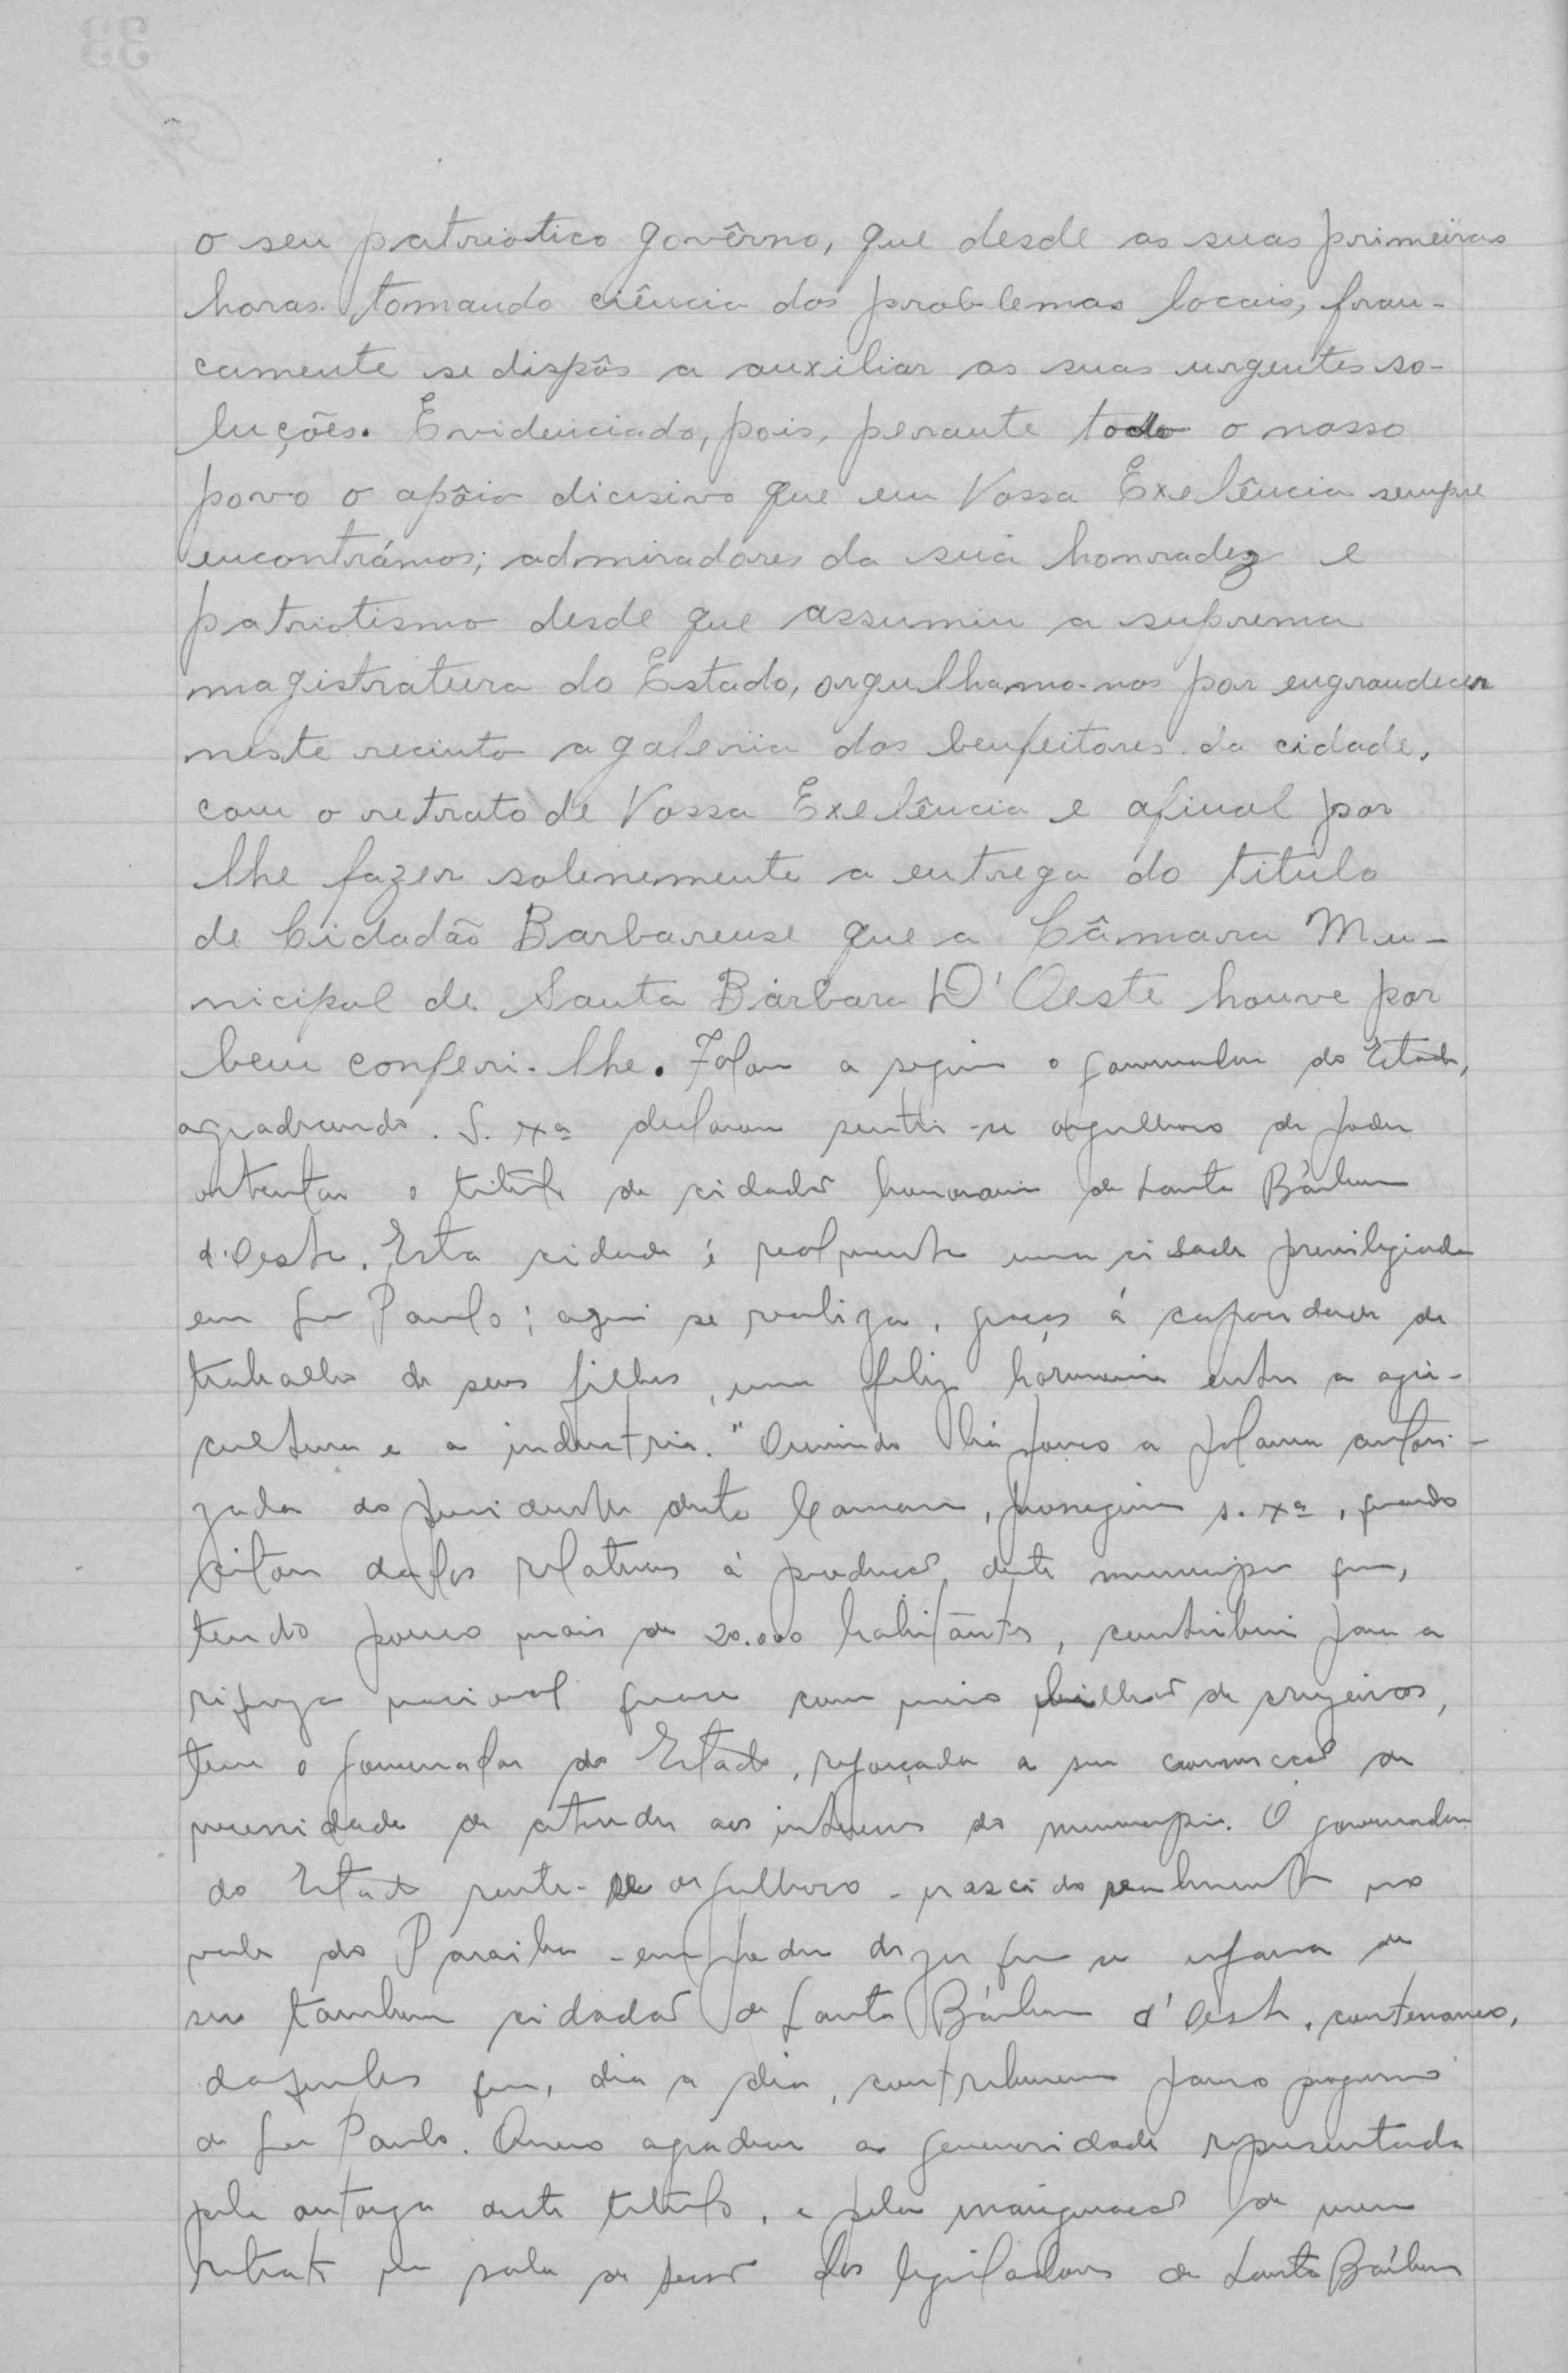 o seu patriotico govêrno, que desde as suas primeiras
horas tomando ciência dos problemas locais, fran-
camente se dispôs a auxiliar as suas urgentes so-
luções. Evidenciado, pois, perante todo o nosso
povo o apôio dicisivo que em Vossa Exelência sempre
encontrámos; admiradores da sua honradez e
patriotismo desde que assumiu a suprema
magistratura do Estado, orgulhamo-nos por engrandecer
neste recinto a galeria dos benfeitores da cidade,
com o retrato de Vossa Exelência e afinal por
lhe fazer solenemente a entrega do titulo
de Cidadão Barbarense que a Câmara Mu-
nicipal de Santa Bárbara D'Oeste houve por
bem conferi-lhe. Falou a seguir o governador do Estado,
agradecendo. S. Exa declarou sentir-se orgulhoso de poder
ostentar o titulo de cidadão honorario de Santa Bárbara
d'Oeste. Esta cidade é realmente uma cidade previlegiada
em São Paulo; aqui se realiza, graças á capacidade de
trabalho de seus filhos, uma feliz harmonia entre a agri-
cultura e a industria. "Ouvindo há pouco a palavra autori-
zada do presidente desta Camara, prosseguiu s. exa, quando
citou dados relativos á produção deste municipio que,
tendo pouco mais de 20.000 habitantes, contribui para a
riqueza nacional quase com meio bilhão de cruzeiros,
tem o governador do Estado, reforçada a sua convicção da
necessidade de atender aos interesses do municipio. O governador
do Estado sente-se orgulhoso - nascido realmente no
vale do Paraiba - em poder dizer que se ufana de
ser tambem cidadão de Santa Bárbara d'Oeste, conterraneo,
daqueles que, dia a dia, contribuem para o progresso
de São Paulo. Quero agradecer a generosidade representada
pela outorga deste titulo, e pela inauguração de meu
retrato na sala de sessão dos legisladores de Santa Bárbara